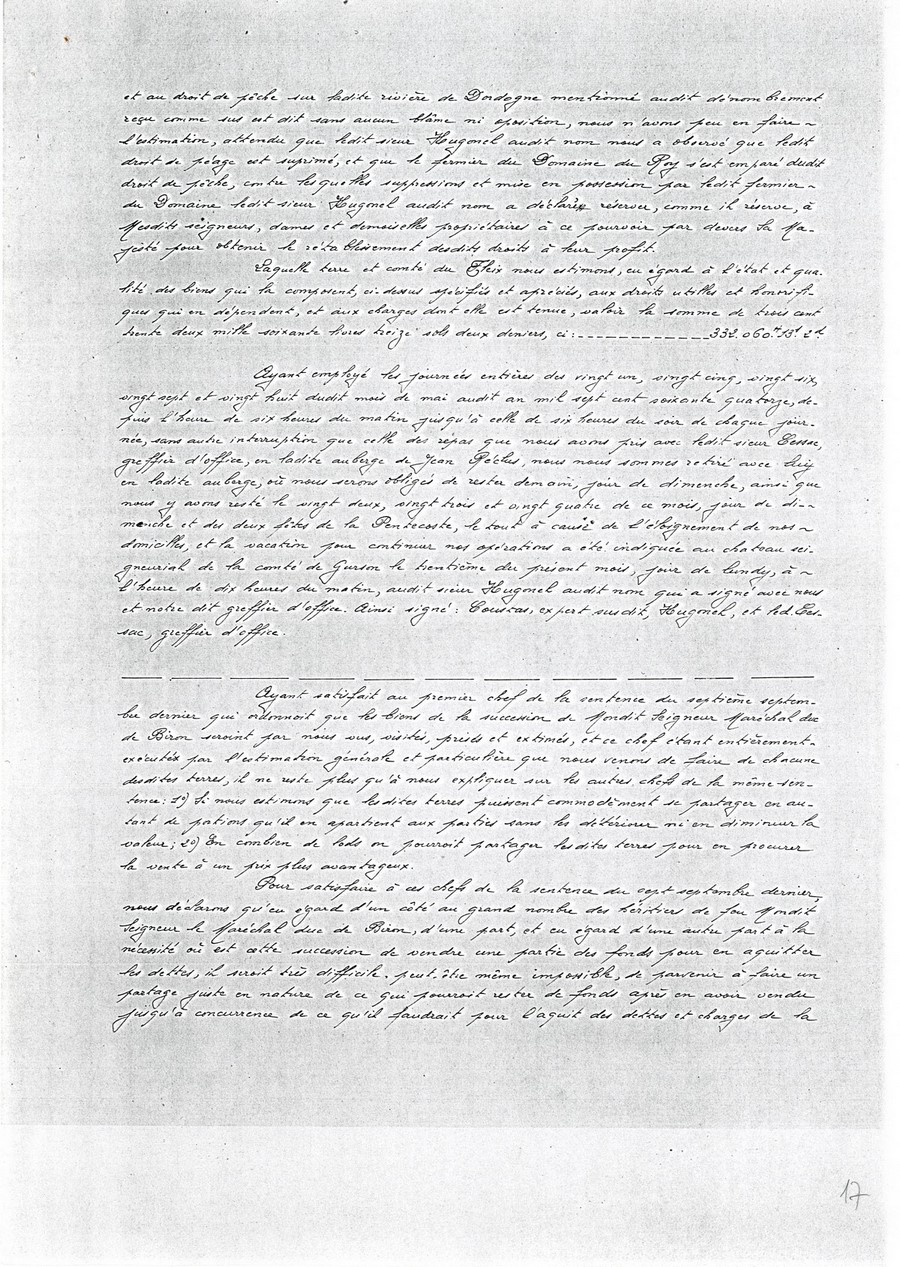 et au droit de pêche sur ladite rivière de Dordogne mentionné audit dénombrement
reçu comme sus est dit sans aucun blâme ni oposition, nous n'avons peu en faire ~
l'estimation, attendu que ledit sieur Hugonel audit nom nous a observé que ledit
droit de péage est suprimé, et que le fermier du Domaine du Roy s'est emparé dudit
droit de pêche, contre lesquelles suppressions et mise en possession par ledit fermier ~
du Domaine ledit sieur Hugonel audit nom a déclaré réserver, comme il réserve, à
Mesdits seigneurs, dames et demoiselles propriétaires à ce pourvoir par devers Sa Ma-
jesté pour obtenir le rétablissement desdits droits à leur profit.
Laquelle terre et comté du Fleix nous estimons, eu égard à l'état et qua-
lité des biens qui la composent, ci-dessus spécifiés et apréciés, aux droits utilles et honorifi-
ques qui en dépendent, et aux charges dont elle est tenue, valoir la somme de trois cent
trente deux mille soixante livres treize sols deux deniers, ci: _ _ _ _ _ _ _ _ _ _ _ 332.060# 13s 2d.
Ayant employé les journées entières des vingt un, vingt cinq, vingt six,
vingt sept et vingt huit dudit mois de mai audit an mil sept cent soixante quatorze, de-
puis l'heure de six heures du matin jusqu'à celle de six heures du soir de chaque jour-
née, sans autre interruption que celle des répas que nous avons pris avec ledit sieur Cessac,
greffier d'office, en ladite auberge de Jean Réclus, nous nous sommes retiré avec luy
en ladite auberge, où nous serons obligés de rester demain, jour de dimenche, ainsi que
nous y avons resté le vingt deux, vingt trois et vingt quatre de ce mois, jour de di- ~
menche et des deux fêtes de la Pentecoste, le tout à cause de l'éloignement de nos ~
domicilles, et la vacation pour continuer nos opérations a été indiquée au chateau sei-
gneurial de la comté de Gurson le trentième du présent mois, jour de lundy, à ~
l'heure de dix heures du matin, audit sieur Hugonel audit nom qui a signé avec nous
et notre dit greffier d'office. Ainsi signé: Courtas, expert susdit, Hugonel, et led. Ces-
sac, greffier d'office.
Ayant satisfait au premier chef de la sentence du septième septem-
bre dernier qui ordonnoit que les biens de la succession de Mondit Seigneur Maréchal duc
de Biron seroint par nous vus, visités, prisés et extimés, et ce chef étant entièrement ~
exécutés par l'estimation générale et particulière que nous venons de faire de chacune
desdites terres, il ne reste plus qu'à nous expliquer sur les autres chefs de la même sen-
tence: 1°) Si nous estimons que lesdites terres puissent commodément se partager en au-
tant de pations qu'il en apartient aux parties sans les détériorer ni en diminuer la
valeur; 2°) En combien de lods on pourroit partager lesdites terres pour en procurer
la vente à un prix plus avantageux.
Pour satisfaire à ces chefs de la sentence du sept septembre dernier,
nous déclarons qu'eu égard d'un côté au grand nombre des héritiers de feu Mondit
Seigneur le Maréchal duc de Biron, d'une part, et eu égard d'une autre part à la
nécessité où est cette succession de vendre une partie des fonds pour en aquitter
les dettes, il seroit très difficile, peut-être même impossible, de parvenir à faire un
partage juste en nature de ce qui pourroit rester de fonds après en avoir vendu
jusqu'à concurrence de ce qu'il faudrait pour l'aquit des dettes et charges de la
17